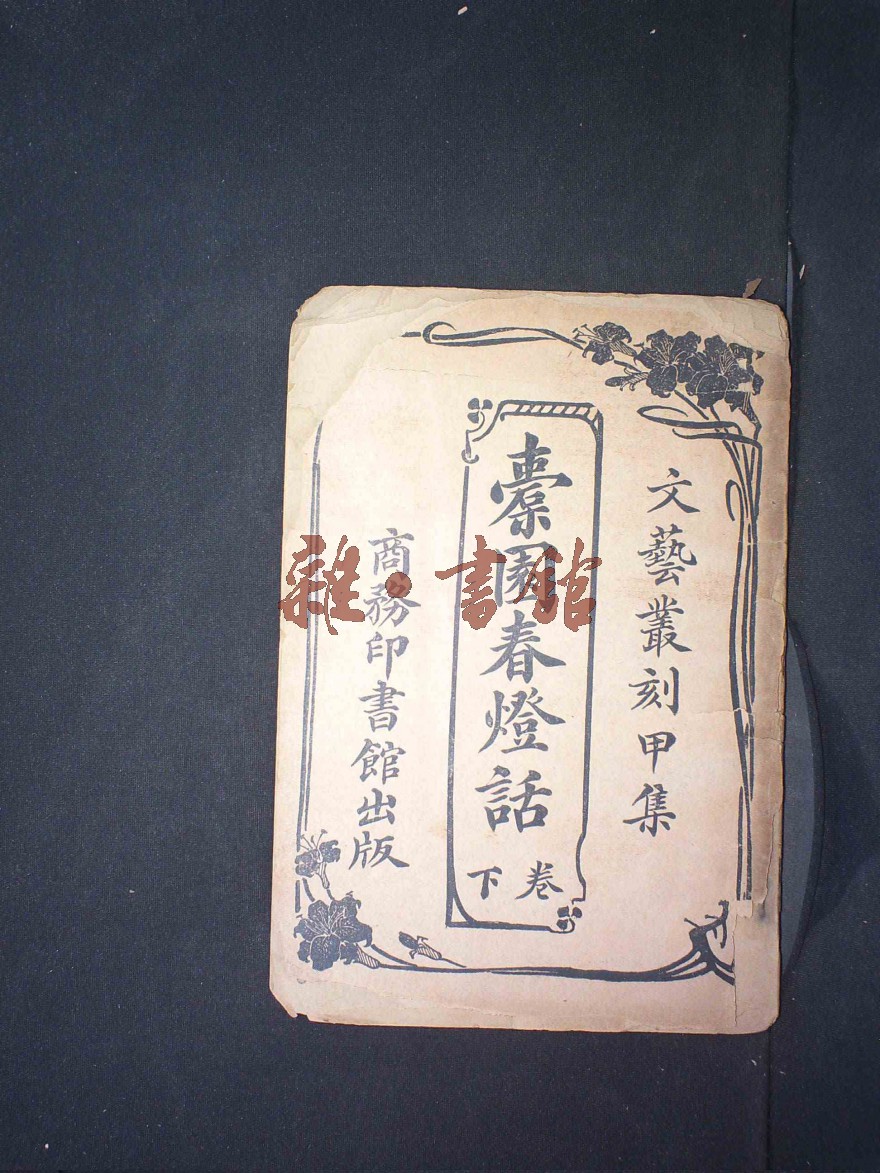 文藝叢刻甲集
橐園春燈話
卷下
商務印書館出版
雜·書館